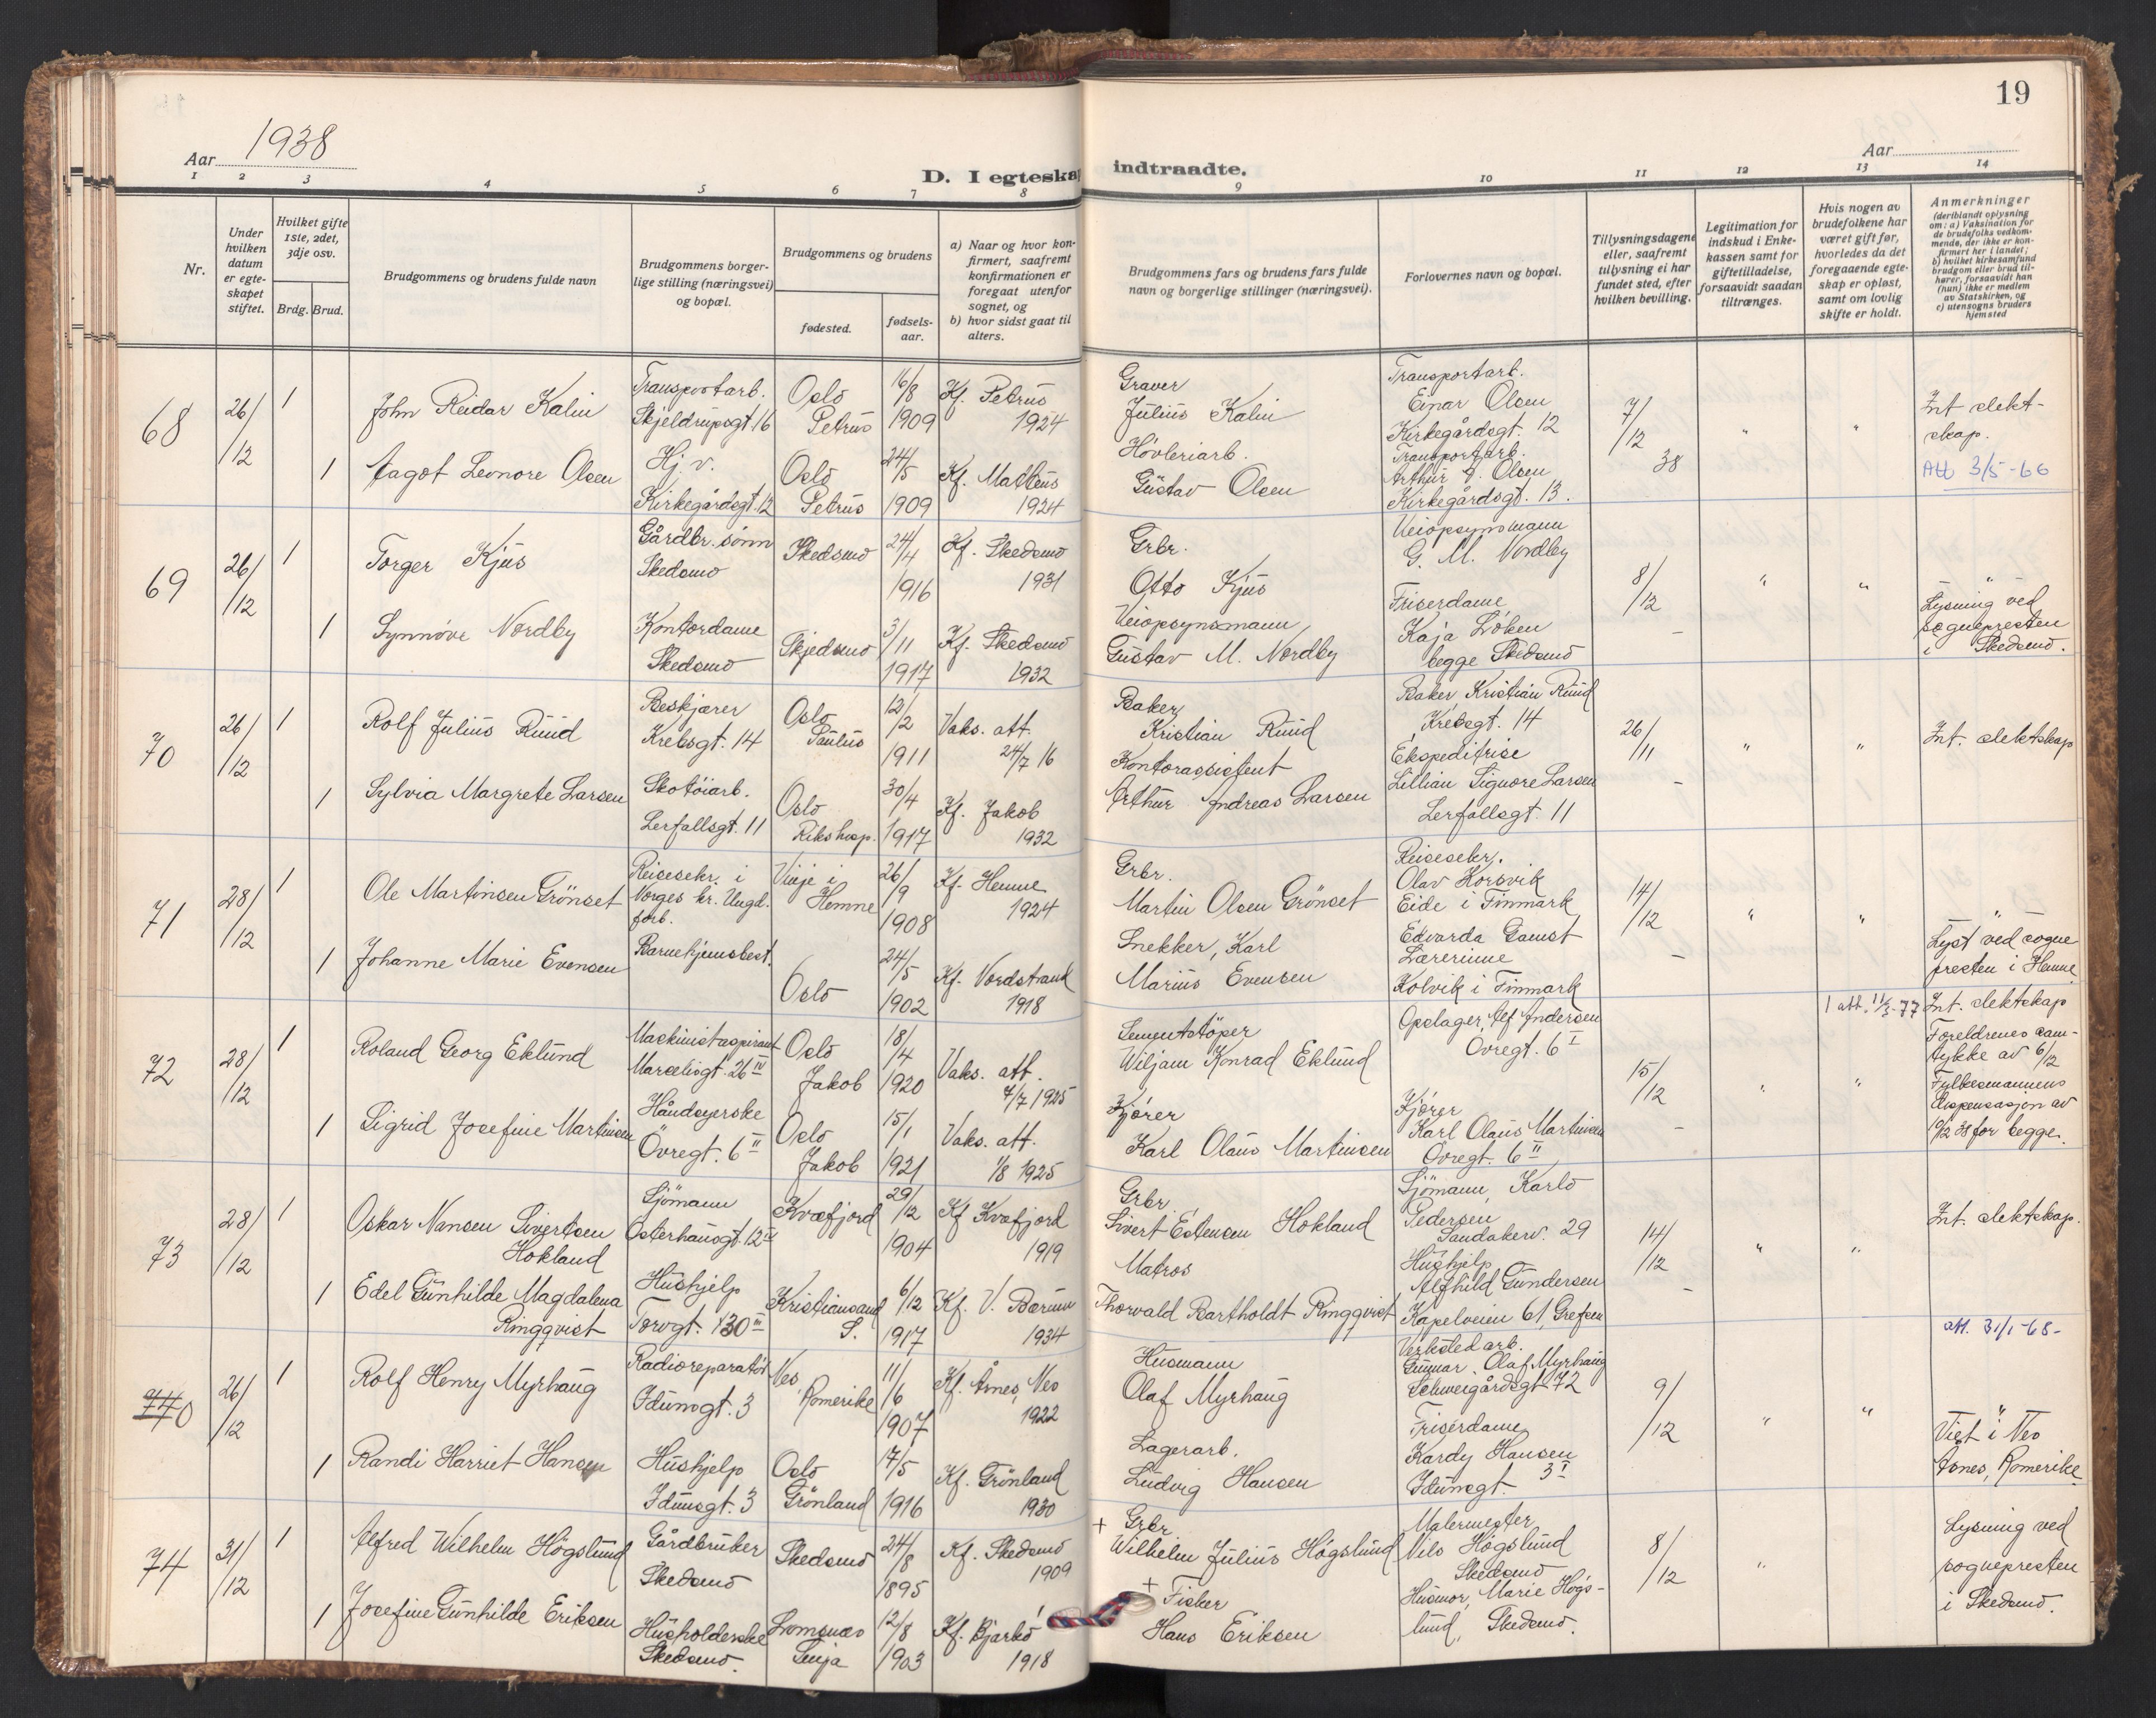 19
Aar 1938
Aar
D. I egteskap indtraadte.
1 2 3 4 5 6 7 8 9 10 11 12 13 14
Nr.
Under hvilken datum er egteskapet stiftet.
Hvilket gifte 1ste, 2det, 3dje osv.
Brdg. Brud.
Brudgommens og brudens fulde navn
Brudgommens borgerlige stilling (næringsvei) og bopæl.
Brudgommens og brudens
fødested.
fødselsaar.
a) Naar og hvor konfirmert, saafremt konfirmationen er foregaat utenfor sognet, og
b) hvor sidst gaat til alters.
Brudgommens fars og brudens fars fulde navn og borgerlige stillinger (næringsvei).
Forlovernes navn og bopæl.
Tillysningsdagene eller, saafremt tillysning ei har fundet sted, efter hvilken bevilling.
Legitimation for indskud i Enkekassen samt for giftetilladelse, forsaavidt saadan tiltrænges.
Hvis nogen av brudefolkene har været gift før, hvorledes da det foregaaende egteskap er opløst, samt om lovlig skifte er holdt.
Anmerkninger
(deriblandt oplysning om: a) Vaksination for de brudefolks vedkommende, der ikke er konfirmert her i landet; b) hvilket kirkesamfund brudgom eller brud tilhører, forsaavidt han (hun) ikke er medlem av Statskirken, og c) utensogns bruders hjemsted
68 26/12 1 John Reidar Kalin Transportarb. Skjeldrupsgt. 16 Oslo Petrus 16/8 1909 Kf. Petrus 1924 Graver Julius Kalin Transportarb. Einar Olsen Kirkegårdsgt. 12 7/12 38 " " Int slektskap.
1 Aagot Leonore Olsen Hj. v. Kirkegårdsgt. 12 Oslo Petrus 24/5 1909 Kf. Matteus 1924 Høvleriarb. Gustav Olsen Transportarb. Arthur G. Olsen Kirkegårdsgt. 13. Att 3/5-66
69 26/12 1 Torger Kjus Gårdbr. sønn Skedsmo Skedsmo 24/4 1916 Kf. Skedsmo 1931 Grbr. Otto Kjus Veiopsynsmann G. M. Nordby 8/12 " " "
1 Synnøve Nordby Kontordame Skedsmo Skjedsmo 3/11 1917 Kf. Skedsmo 1932 Veiopsynsmann Gustav M. Nordby Friserdame Kaja Løken begge Skedsmo - Lysning ved sognepresten i Skedsmo.
70 26/12 1 Rolf Julius Ruud Beskjærer Krebsgt. 14 Oslo Paulus 12/2 1911 Vaks. att. 24/7 16 Baker Kristian Ruud Baker Kristian Ruud Krebsgt. 14 26/11 " " Int. slektskap
1 Sylvia Margrete Larsen Skotøiarb. Lerfallsgt. 11 Oslo Rikshosp. 30/4 1917 Kf. Jakob 1932 Kontorassistent Arthur Andreas Larsen Ekspeditrise Lillian Signore Larsen Lerfallsgt. 11 -
71 28/12 1 Ole Martinsen Grönset Reisesekr. i Norges kr. Ungd. forb. Vinje i Hemne 26/9 1908 Kf. Hemne 1924 Grbr. Martin Olsen Grönset Reisesekr. Olav Korsvik Eide i Finmark 14/12 " " "
1 Johanne Marie Evensen Barnehjemsbest. Oslo 24/5 1902 Kf. Nordstrand 1918 Snekker, Karl Marius Evensen Edvarda Gamst Lærerinne Kolvik i Finmark - Lyst ved sogne presten i Hemne
72 28/12 1 Roland Georg Eklund Maskinistaspirant Marselisgt. 26 IV Oslo Jakob 18/4 1920 Vaks. att. 7/7 1925 Sementstöper Wiljam Konrad Eklund Opslager, Alf Andersen Övregt. 6 I 15/12 " " 1 att. 11/3-77 Int. slektskap Foreldrenes samtykke av 6/12 Fylkesmannens dispensasjon av 10/12 38 for begge.
1 Sigrid Josefine Martinsen Håndsyerske Övregt. 6 II Oslo Jakob 15/1 1921 Vaks. att. 1/8 1925 Kjører Karl Olaus Martinsen Kjører Karl Olaus Martinsen Övregt. 6 II -
73 28/12 1 Oskar Nansen Sivertsen Hokland Sjömann Osterhausgt. 12 II Kvæfjord 29/12 1904 Kf Kvæfjord 1919 Grbr. Sivert Estensen Hokland Sjömann, Karlo Pedersen Sandakerv. 29 14/12 " " Int. slektskap.
1 Edel Gunhilde Magdalena Ringqvist Hushjelp Torvgt. 130 III Kristiansand S. 6/12 1917 Kf. V. Bærum 1934 Matros Thorvald Bartholdt Ringqvist Hushjelp Alfhild Gundersen Kapelveien 61, Grefsen - att. 31/1-68-
740 26/12 1 Rolf Henry Myrhaug Radioreparatör Idunsgt. 3 Nes, Romerike 11/6 1907 Kf. Årnes, Nes 1922 Husmann Olaf Myrhaug Verkstedarb. Gunnar Olaf Myrhaug Schweigårdsgt. 72 9/12 " " "
1 Randi Harriet Hansen Hushjelp Idunsgt. 3 Oslo Grönland 17/5 1916 Kf. Grönland 1930 Lagerarb. Ludvig Hansen Friserdame Kardy Hansen Idunsgt. 3 I Viet i Nes Årnes, Romerike
74 31/12 1 Alfred Wilhelm Högslund Gårdbruker Skedsmo Skedsmo 24/8 1895 Kf. Skedsmo 1909 + Grbr Wilhelm Julius Högslund Malermester Nils Högslund Skedsmo 8/12 " Lysning ved sognepresten i Skedsmo.
1 Josefine Gunhilde Eriksen Husholderske Skedsmo. Senja 12/8 1903 Kf. Bjarkö 1918 + Fisker Hans Eriksen Husmor, Marie Högslund, Skedsmo.